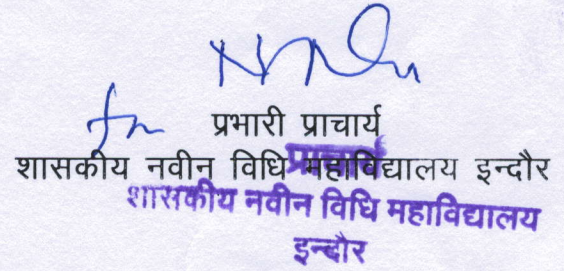 for
प्रभारी प्राचार्य
शासकीय नवीन विधि महाविद्यालय इन्दौर
प्राचार्य
शासकीय नवीन विधि महाविद्यालय
इन्दौर